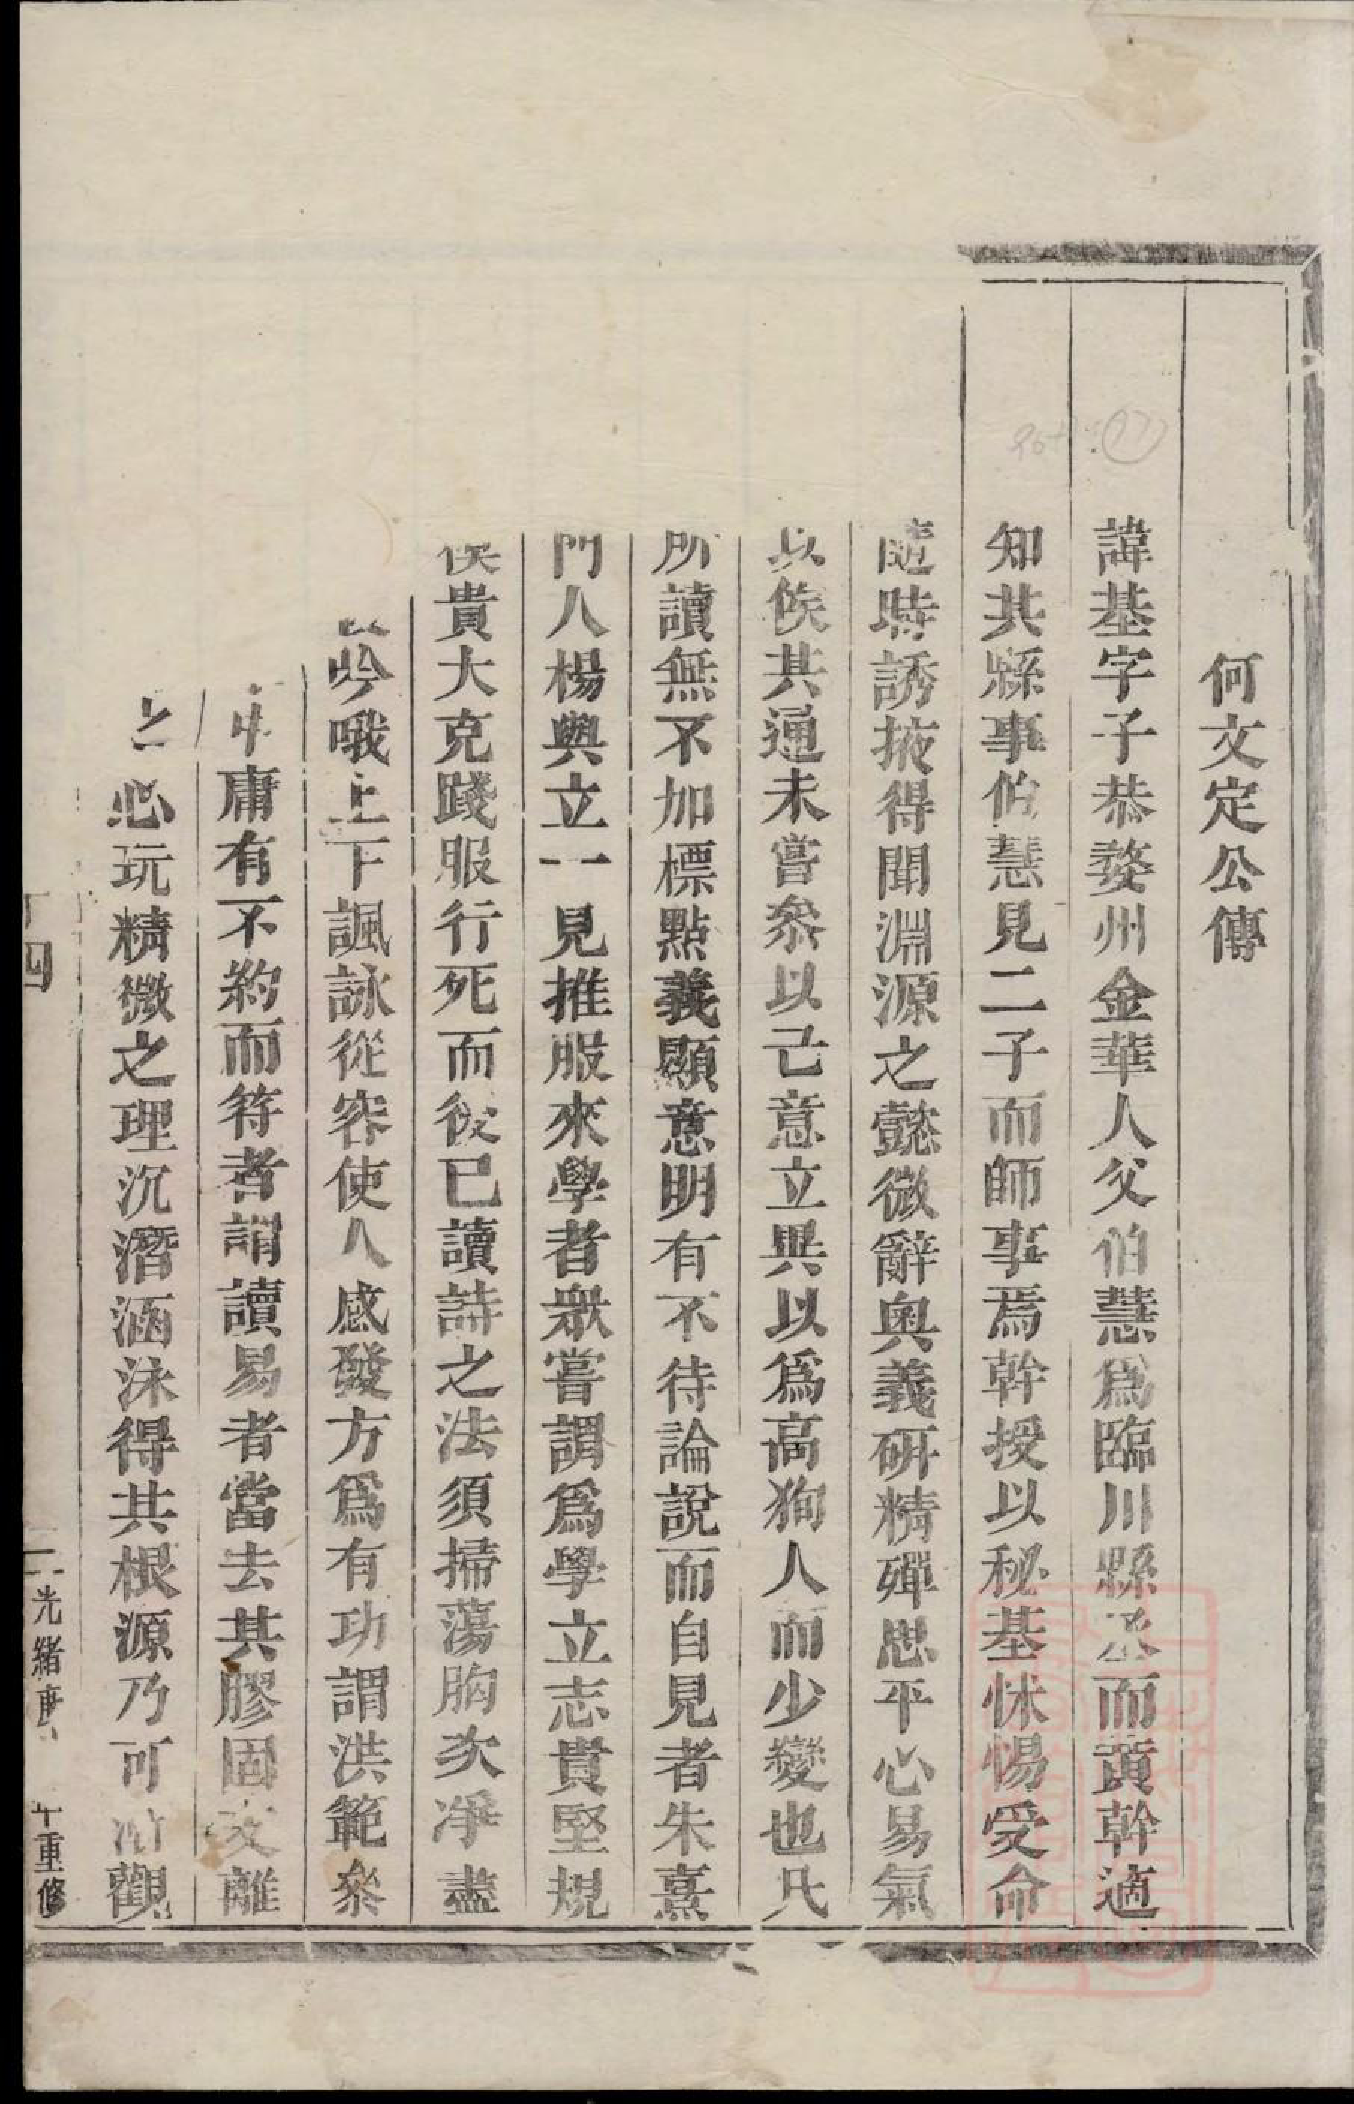 何文定公傳
諱基字子恭婺州金華人父伯慧為臨川縣丞而黃幹適
知其縣事伯慧見二子而師事焉幹授以秘基怵惕受命
隨時誘掖得聞淵源之懿微辭奧義研精殫思平心易氣
以俟其通未嘗叅以己意立異以為高狥人而少變也凡
所讀無不加標點義顯意明有不待論說而自見者朱熹
門人楊與立一見推服來學者衆嘗謂為學立志貴堅規
貴大克踐服行死而後已讀詩之法須掃蕩胸次凈盡
吟哦上下諷詠從容使人感發方為有功謂洪範叅
中庸有不約而符者謂讀易者當去其膠固支離
必玩精微之理沉潛涵泳得其根源乃可 觀
四
光緒庚 午重修